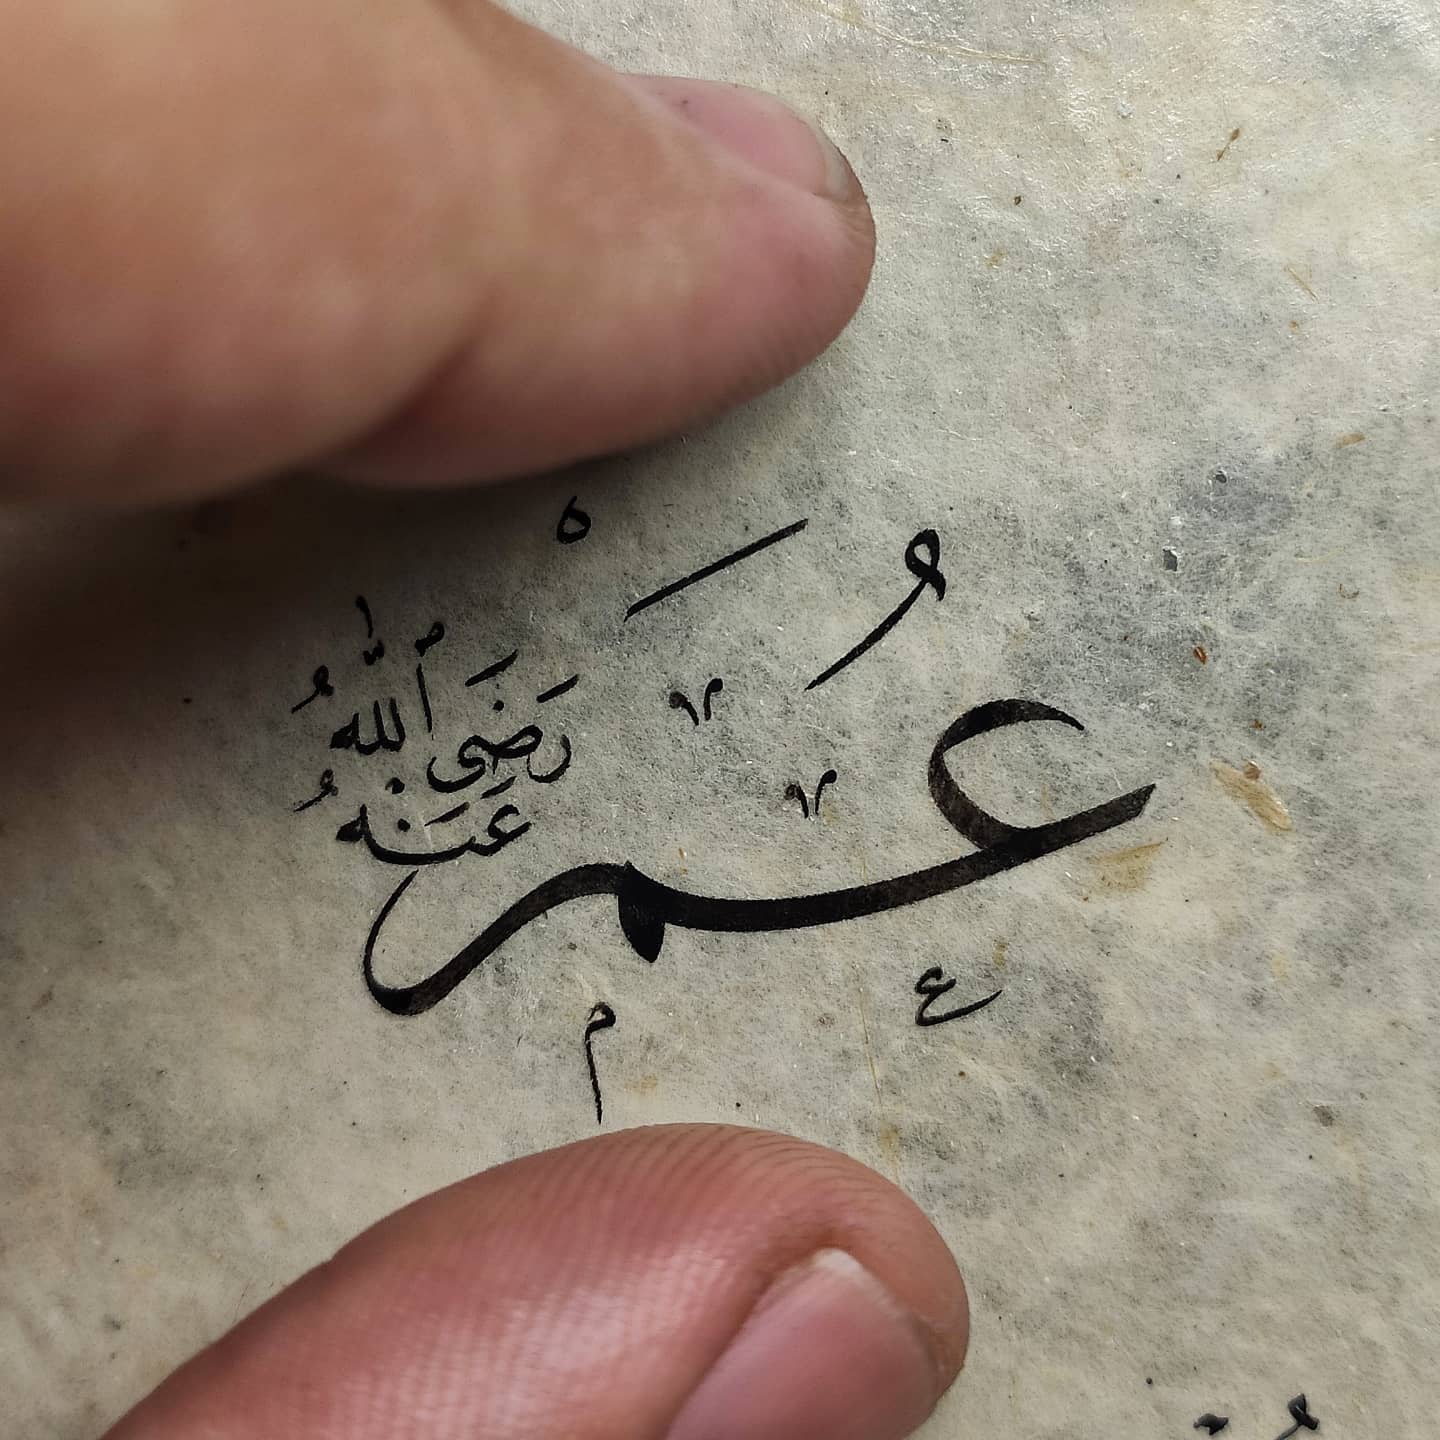 عُمَرْ
رَضِيَ ٱللّٰهُ
عَنْهُ